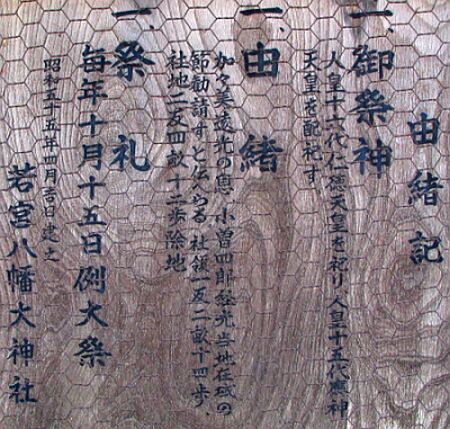 由緒記
一、御祭神
人皇十六代仁徳天皇を祀り人皇十五代應神
天皇を配祀す。
一、由緒
加々美遠光の息 小曽四郎經光当地在城の
節勧請すと伝へる 社領一反二畝十四歩、
社地二反四畝十二歩除地
一、祭礼
毎年十月十五日例大祭
昭和五十五年四月吉日建之
若宮八幡大神社